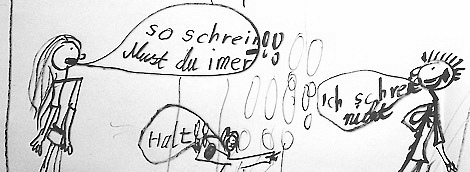 so schrein
Must du imer!!
Halt!
ich schrei
nicht